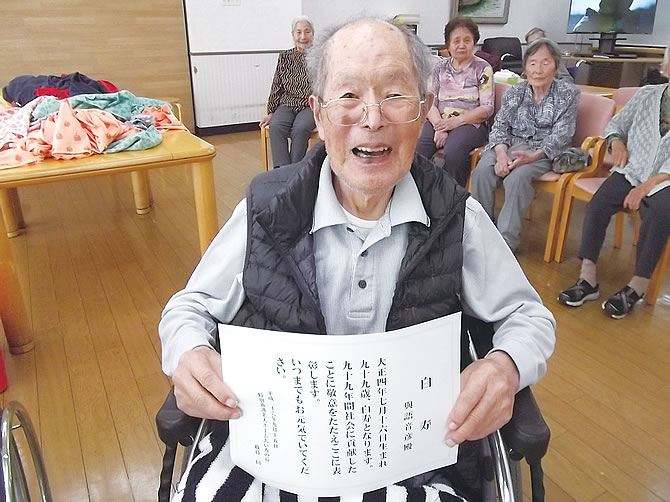 白寿
與語音彦殿
大正四年七月十六日生まれ
九十九歳、白寿となります。
九十九年間社会に貢献した
ことに敬意をたたえここに表
彰します。
いつまでもお元気でいてくだ
さい。